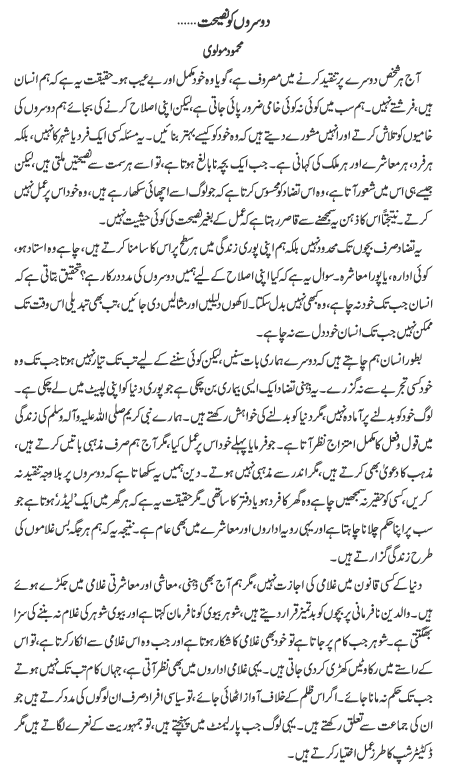 دوسروں کو نصیحت......
محمود مولوی
آج ہر شخص دوسرے پر تنقید کرنے میں مصروف ہے، گویا وہ خود مکمل اور بے عیب ہو۔ حقیقت یہ ہے کہ ہم انسان
ہیں، فرشتے نہیں۔ ہم سب میں کوئی نہ کوئی خامی ضرور پائی جاتی ہے، لیکن اپنی اصلاح کرنے کی بجائے ہم دوسروں کی
خامیوں کو تلاش کرتے اور انہیں مشورے دیتے ہیں کہ وہ خود کو کیسے بہتر بنائیں۔ یہ مسئلہ کسی ایک فرد یا شہر کا نہیں، بلکہ
ہر فرد، ہر معاشرے اور ہر ملک کی کہانی ہے۔ جب ایک بچہ نابالغ ہوتا ہے، تو اسے ہر سمت سے نصیحتیں ملتی ہیں، لیکن
جیسے ہی اس میں شعور آتا ہے، وہ اس تضاد کو محسوس کرتا ہے کہ جو لوگ اسے اچھائی سکھا رہے ہیں، وہ خود اس پر عمل نہیں
کرتے۔ نتیجتاً اس کا ذہن یہ سمجھنے سے قاصر رہتا ہے کہ عمل کے بغیر نصیحت کی کوئی حیثیت نہیں۔
یہ تضاد صرف بچوں تک محدود نہیں بلکہ ہم اپنی پوری زندگی میں ہر سطح پر اس کا سامنا کرتے ہیں، چاہے وہ استاد ہو،
کوئی ادارہ، یا پورا معاشرہ۔ سوال یہ ہے کہ کیا اپنی اصلاح کے لیے ہمیں دوسروں کی مدد درکار ہے؟ تحقیق بتاتی ہے کہ
انسان جب تک خود نہ چاہے، وہ کبھی نہیں بدل سکتا۔ لاکھوں دلیلیں اور مثالیں دی جائیں، تب بھی تبدیلی اس وقت تک
ممکن نہیں جب تک انسان خود دل سے نہ چاہے۔
بطور انسان ہم چاہتے ہیں کہ دوسرے ہماری بات سنیں، لیکن کوئی سننے کے لیے تب تک تیار نہیں ہوتا جب تک وہ
خود کسی تجربے سے نہ گزرے۔ یہ ذہنی تضاد ایک ایسی بیماری بن چکی ہے جو پوری دنیا کو اپنی لپیٹ میں لے چکی ہے۔
لوگ خود کو بدلنے پر آمادہ نہیں، مگر دنیا کو بدلنے کی خواہش رکھتے ہیں۔ ہمارے نبی کریم صلی اللہ علیہ وآلہ وسلم کی زندگی
میں قول و فعل کا مکمل امتزاج نظر آتا ہے۔ جو فرمایا پہلے خود اس پر عمل کیا، مگر آج ہم صرف مذہبی باتیں کرتے ہیں،
مذہب کا دعویٰ بھی کرتے ہیں، مگر اندر سے مذہبی نہیں ہوتے۔ دین ہمیں یہ سکھاتا ہے کہ دوسروں پر بلاوجہ تنقید نہ
کریں، کسی کو حقیر نہ سمجھیں چاہے وہ گھر کا فرد ہو یا دفتر کا ساتھی۔ مگر حقیقت یہ ہے کہ ہر گھر میں ایک "لیڈر" ہوتا ہے جو
سب پر اپنا حکم چلانا چاہتا ہے اور یہی رویہ اداروں اور معاشرے میں بھی عام ہے۔ نتیجہ یہ کہ ہم ہر جگہ بس غلاموں کی
طرح زندگی گزارتے ہیں۔
دنیا کے کسی قانون میں غلامی کی اجازت نہیں، مگر ہم آج بھی ذہنی، معاشی اور معاشرتی غلامی میں جکڑے ہوئے
ہیں۔ والدین نافرمانی پر بچوں کو بدتمیز قرار دیتے ہیں، شوہر بیوی کو نافرمان کہتا ہے اور بیوی شوہر کی غلام نہ بننے کی سزا
بھگتتی ہے۔ شوہر جب کام پر جاتا ہے تو خود بھی غلامی کا شکار ہوتا ہے اور جب وہ اس غلامی سے انکار کرتا ہے، تو اس
کے راستے میں رکاوٹیں کھڑی کر دی جاتی ہیں۔ یہی غلامی اداروں میں بھی نظر آتی ہے، جہاں کام تب تک نہیں ہوتے
جب تک حکم نہ مانا جائے۔ اگر اس ظلم کے خلاف آواز اٹھائی جائے، تو سیاسی افراد صرف ان لوگوں کی مدد کرتے ہیں جو
ان کی جماعت سے تعلق رکھتے ہیں۔ یہی لوگ جب پارلیمنٹ میں پہنچتے ہیں، تو جمہوریت کے نعرے لگاتے ہیں مگر
ڈکٹیٹرشپ کا طرز عمل اختیار کرتے ہیں۔